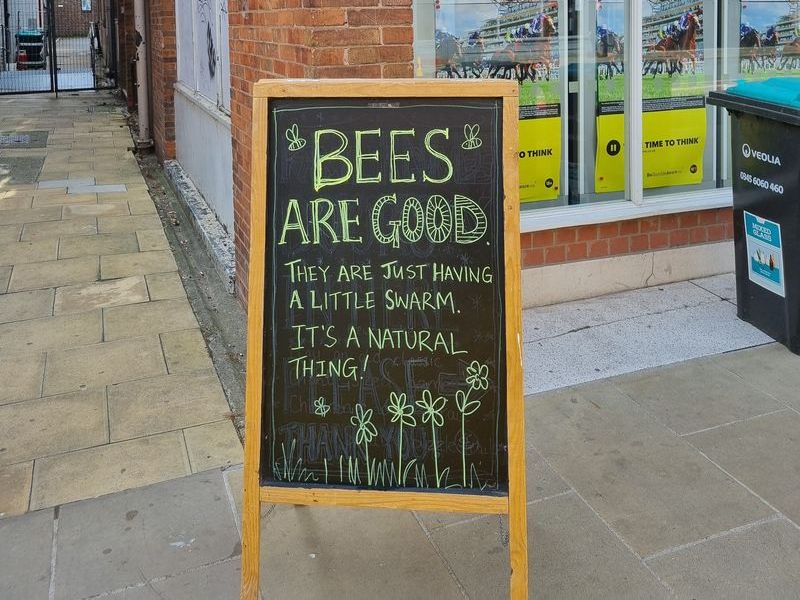 BEES
ARE GOOD.
THEY ARE JUST HAVING
A LITTLE SWARM.
IT'S A NATURAL
THING!
THANK YOU
TO THINK
TIME TO THINK
VEOLIA
0345 6060 460
MIXED GLASS